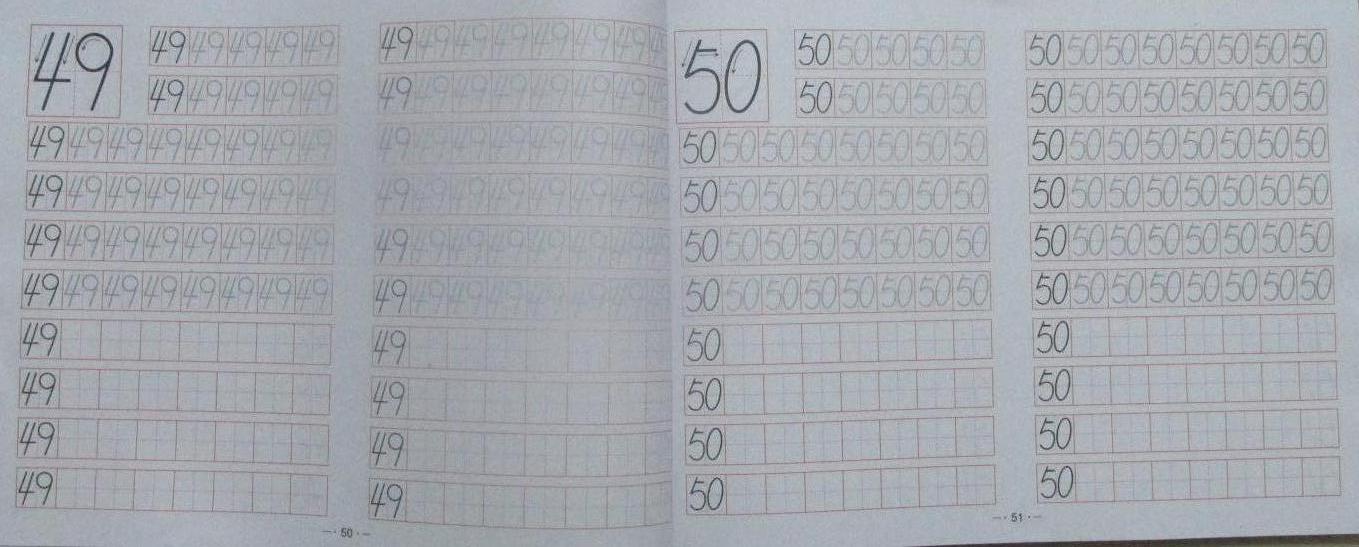 49
49 49 49 49 49
49 49 49 49 49
49 49 49 49 49 49 49 49
49 49 49 49 49 49 49 49
49 49 49 49 49 49 49 49
49 49 49 49 49 49 49 49
49
49
49
49
49 49 49 49 49 49 49
49 49 49 49 49 49 49
49 49 49 49 49 49 49
49 49 49 49 49 49 49
49 49 49 49 49 49 49
49 49 49 49 49 49 49
49
49
49
49
— · 50 · —
50
50 50 50 50 50
50 50 50 50 50
50 50 50 50 50 50 50 50
50 50 50 50 50 50 50 50
50 50 50 50 50 50 50 50
50 50 50 50 50 50 50 50
50
50
50
50
50 50 50 50 50 50 50 50
50 50 50 50 50 50 50 50
50 50 50 50 50 50 50 50
50 50 50 50 50 50 50 50
50 50 50 50 50 50 50 50
50 50 50 50 50 50 50 50
50
50
50
50
— · 51 · —